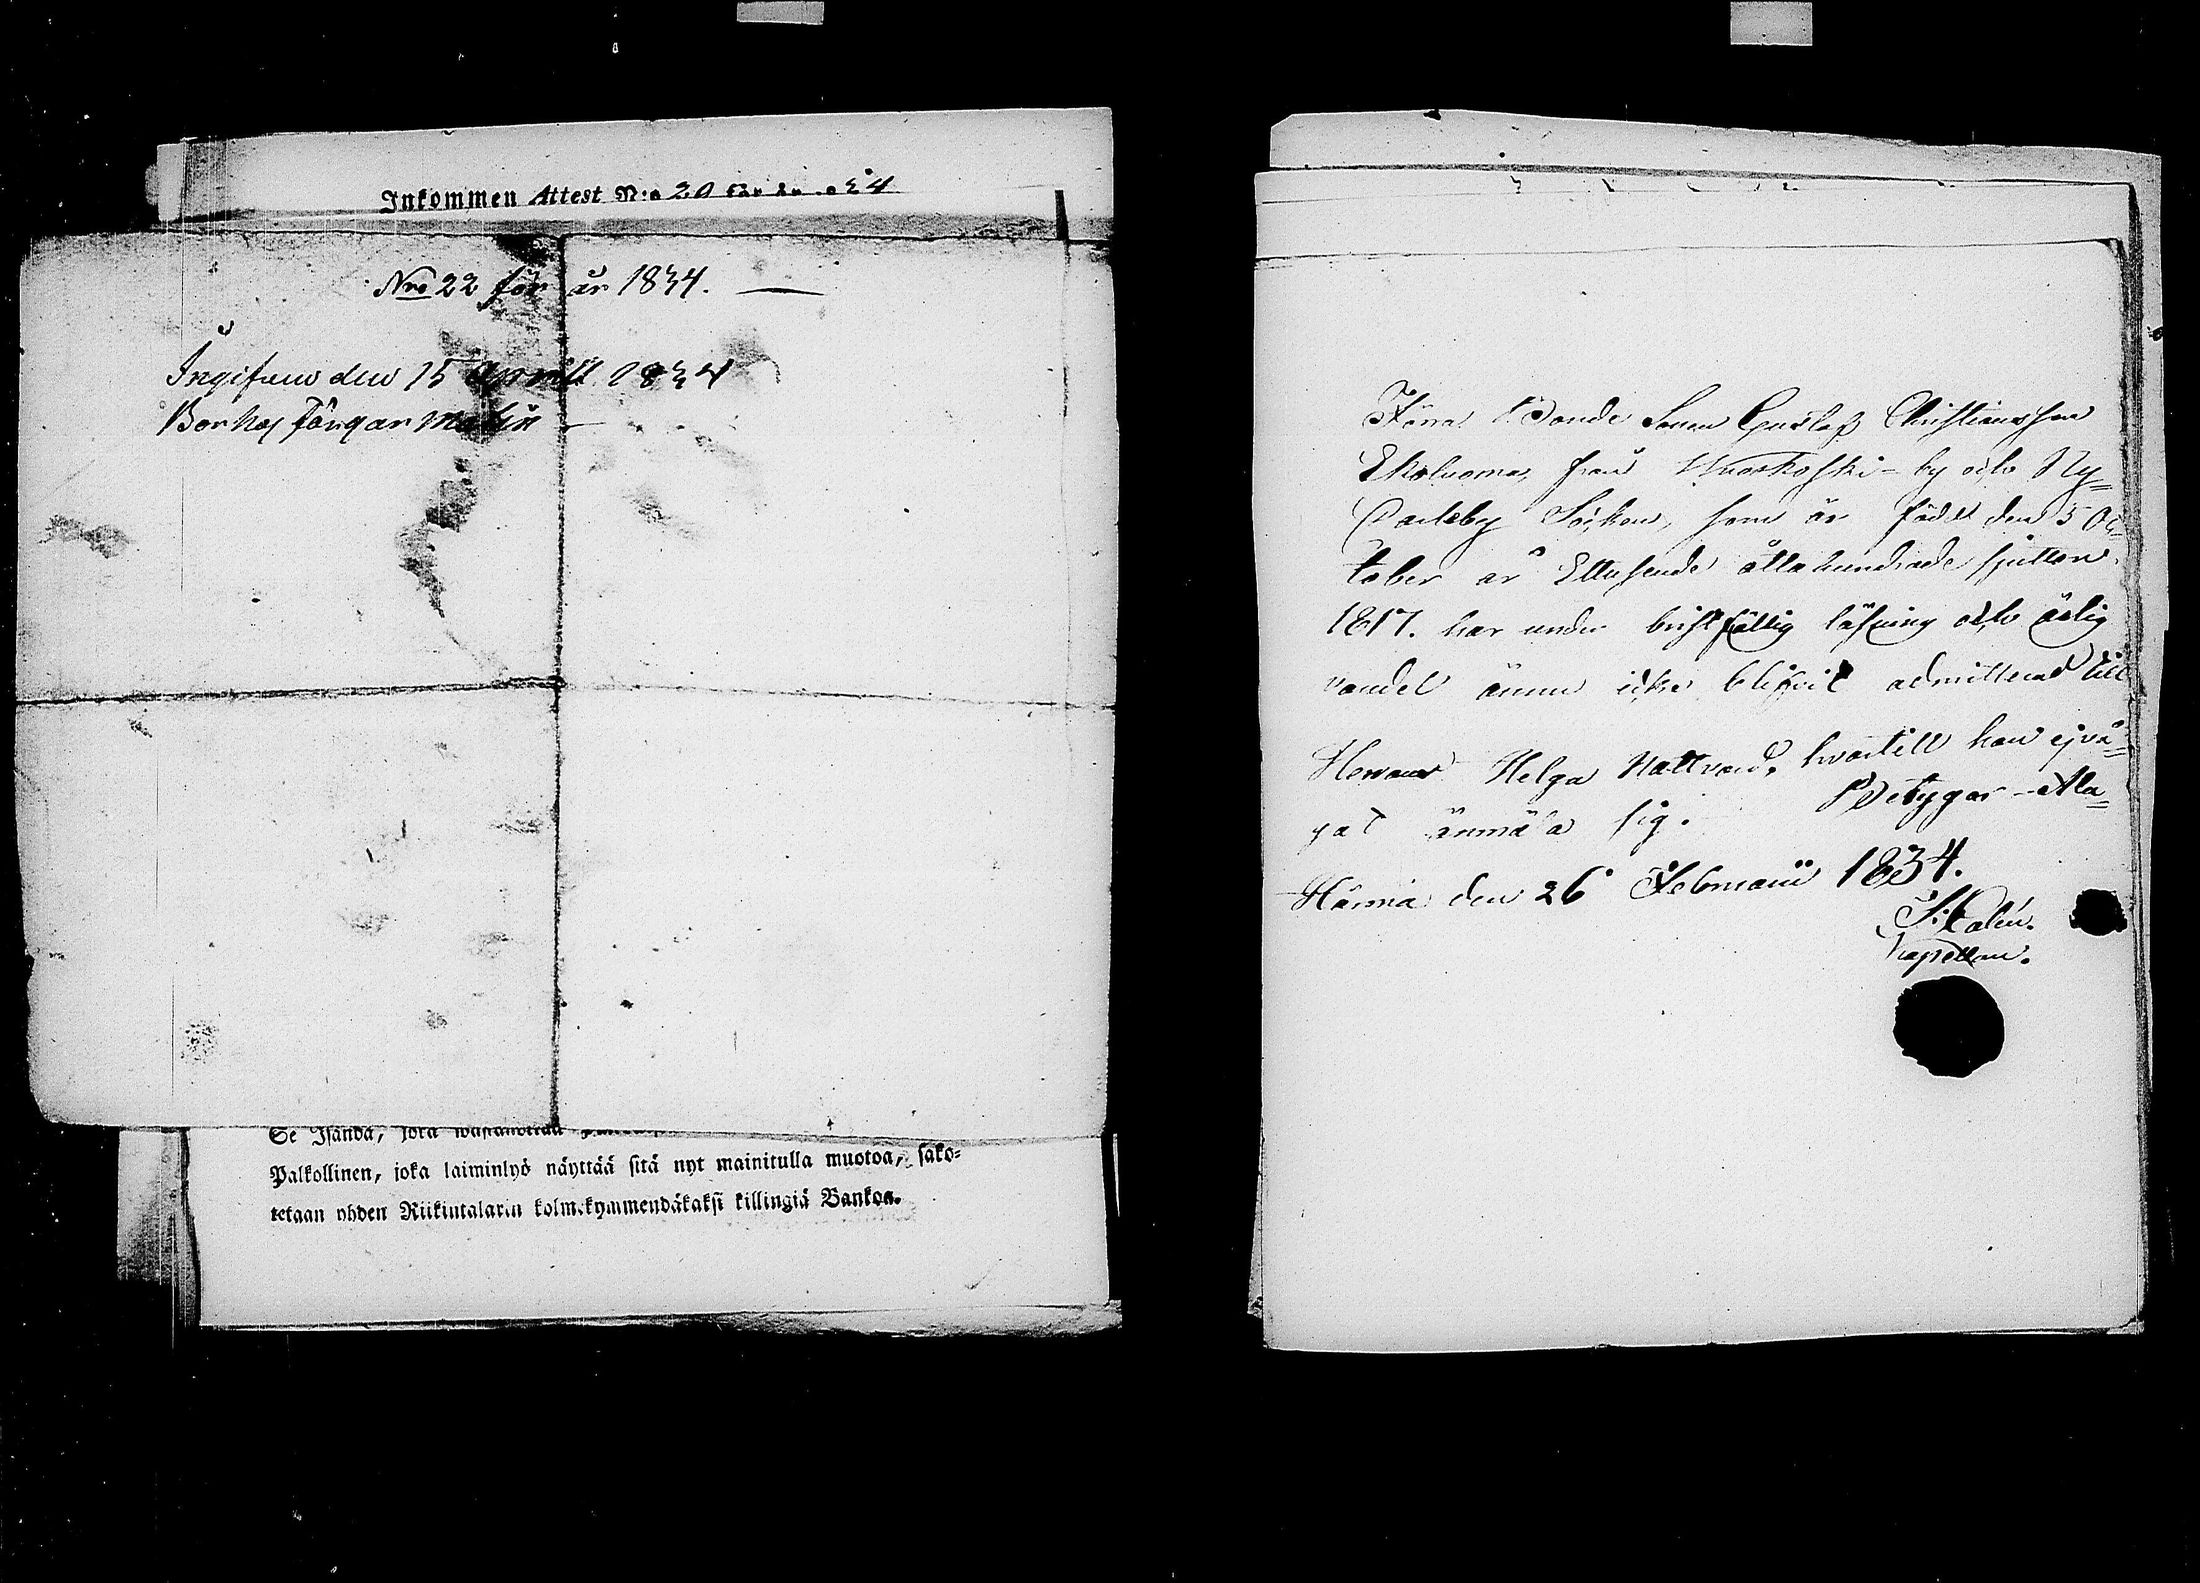 Inkommen Attest N:o 20 för år
Nro 22 för år 1834.
Ingifven den 15 Aprill 1834
Borhaj Tångar Matin
Se Isändä, joka
Palkollinen, joka laiminlyö näyttää sitä nyt mainitulla muotoa, sako=
tetaan yhden Riikintalarin kolmekymmendäkaksi killingiä Bankoa.
Förra Bonde Sonen Gustaf Christiansson
Ekoluoma, från Kuoskoski-by och Ny=
Carleby Socken, som är född den 5 Oc=
tober år Ettusende åttahundrade sjutton
1817. har under bristfällig läsning och ärlig
vandel ännu icke blifvit admitterad till
Herrans Helga Nattvard, hvartill han ej vå=
gat anmäla sig. Betygar Ala=
Härmä den 26 Februarii 1834.
Calén.
Kapellan.